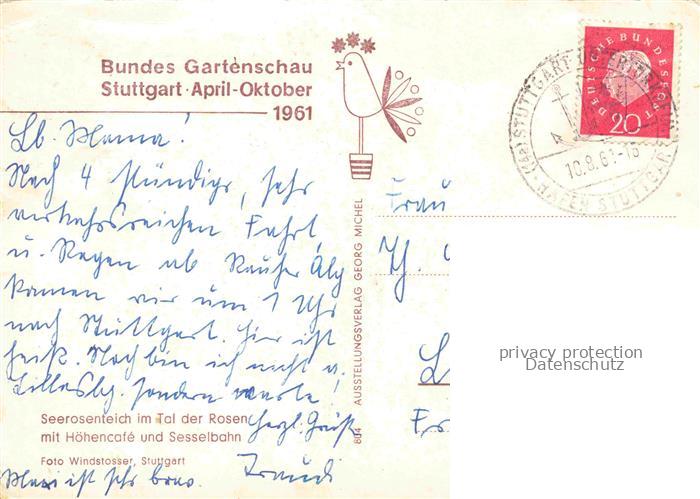 Bundes Gartenschau
Stuttgart · April-Oktober
1961
Lb. Mama!
Nach 4 stündiger, sehr
verkehrsreichen Fahrt
u. Regen ab Rauher Alp
kamen wir um 1 Uhr
nach Stuttgart. Hier ist
heiß. Noch bin ich nicht a.
sondern warte!
Herzl. Grüße
Traudi
Maxi ist sehr brav.
Seerosenteich im Tal der Rosen
mit Höhencafé und Sesselbahn
Foto Windstosser, Stuttgart
804 AUSSTELLUNGSVERLAG GEORG MICHEL
DEUTSCHE BUNDESPOST
20
STUTTGART-UNTERTÜRKHEIM
10.8.61-15
HAFEN STUTTGART
Frau
privacy protection
Datenschutz